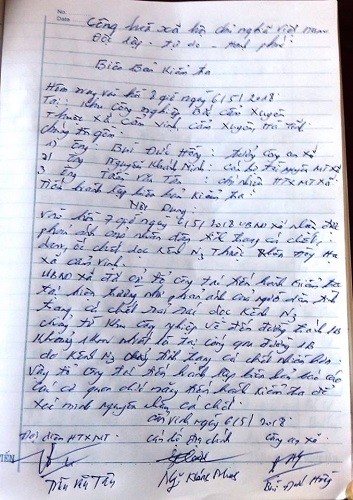 No.
Date
Cộng hoà xã hội chủ nghĩa Việt Nam
Độc lập - Tự do - Hạnh phúc
Biên Bản Kiểm tra
Hôm nay vào hồi giờ ngày 6/5/2018
Tại: Khu Công nghiệp Bắc Cẩm Xuyên
Thuộc xã Cẩm Vịnh, Cẩm Xuyên, Hà Tĩnh
Chúng tôi gồm.
1) Ông: Bùi Đức Hồng: Trưởng Công an xã
2) Ông Nguyễn Khánh Ninh: Cán bộ Tài nguyên MT xã
3) Ông: Trần Văn Tân: chủ nhiệm HTX MT xã
Tiến hành lập biên bản kiểm tra:
Nội Dung.
Vào hồi 7 giờ ngày 6/5/2018 UBND xã nhận được
phản ánh của nhân dân tình trạng cá chết,
chết dọc kênh N3 Thuộc
xã Cẩm Vịnh.
UBND xã đã cử tổ công tác tiến hành kiểm tra
tại hiện trường như phản ánh của người dân tình
trạng cá chết rải rác dọc kênh N3
chảy từ Khu Công nghiệp về đến đường tránh 1B
Khoảng 1km nhất là tại cống qua đường 1B
do kênh N3 chảy tình trạng cá chết nhiều hơn.
Vậy tổ công tác tiến hành lập biên bản báo cáo
các cơ quan chức năng tiến hành kiểm tra để
xác minh nguyên nhân cá chết.
Cẩm Vịnh ngày 6/5/2018.
Đại diện HTXMT. Cán bộ địa chính Công an xã.
Trần Văn Tân Ng. Khánh Ninh Bùi Đức Hồng